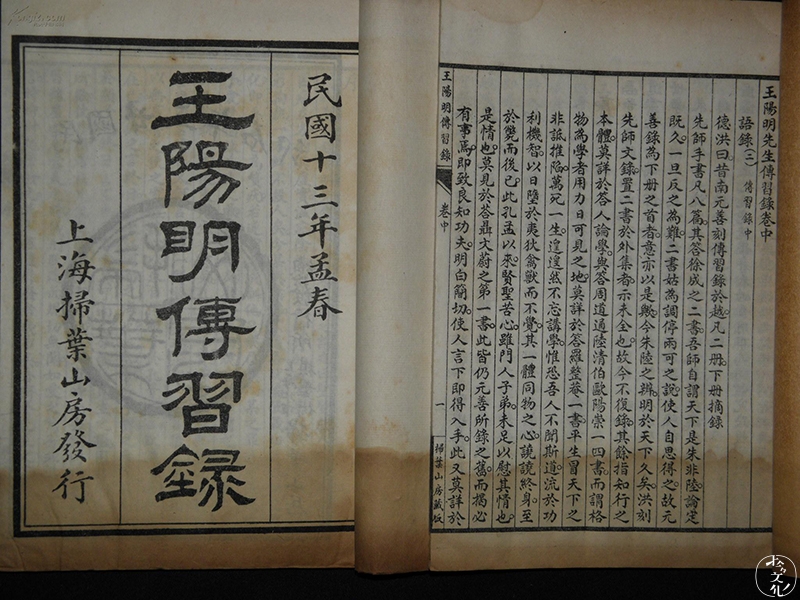 民國十三年孟春
王陽明傳習錄
上海掃葉山房發行
王陽明先生傳習錄卷中
語錄(二) 傳習錄中
德洪曰昔南元善刻傳習錄於越凡二冊下冊摘錄
先師手書凡八篇其答徐成之二書吾師自謂天下是朱非陸論定
既久一旦反之為難二書姑為調停兩可之說使人自思得之故元
善錄為下冊之首者意亦以是與今朱陸之辨明於天下久矣洪刻
先師文錄置二書於外集者示未全也故今不復錄其餘指知行之
本體莫詳於答人論學與答周道通陸清伯歐陽崇一四書而謂格
物為學者用力日可見之地莫詳於答羅整菴一書平生冒天下之
非詆推陷萬死一生遑遑然不忘講學惟恐吾人不聞斯道流於功
利機智以日墮於夷狄禽獸而不覺其一體同物之心譊譊終身至
於斃而後已此孔孟以來賢聖苦心雖門人子弟未足以慰其情也
是情也莫見於答聶文蔚之第一書此皆仍元善所錄之舊而揭必
有事焉即致良知功夫明白簡切使人言下即得入手此又莫詳於
王陽明傳習錄 卷中 一 掃葉山房藏板